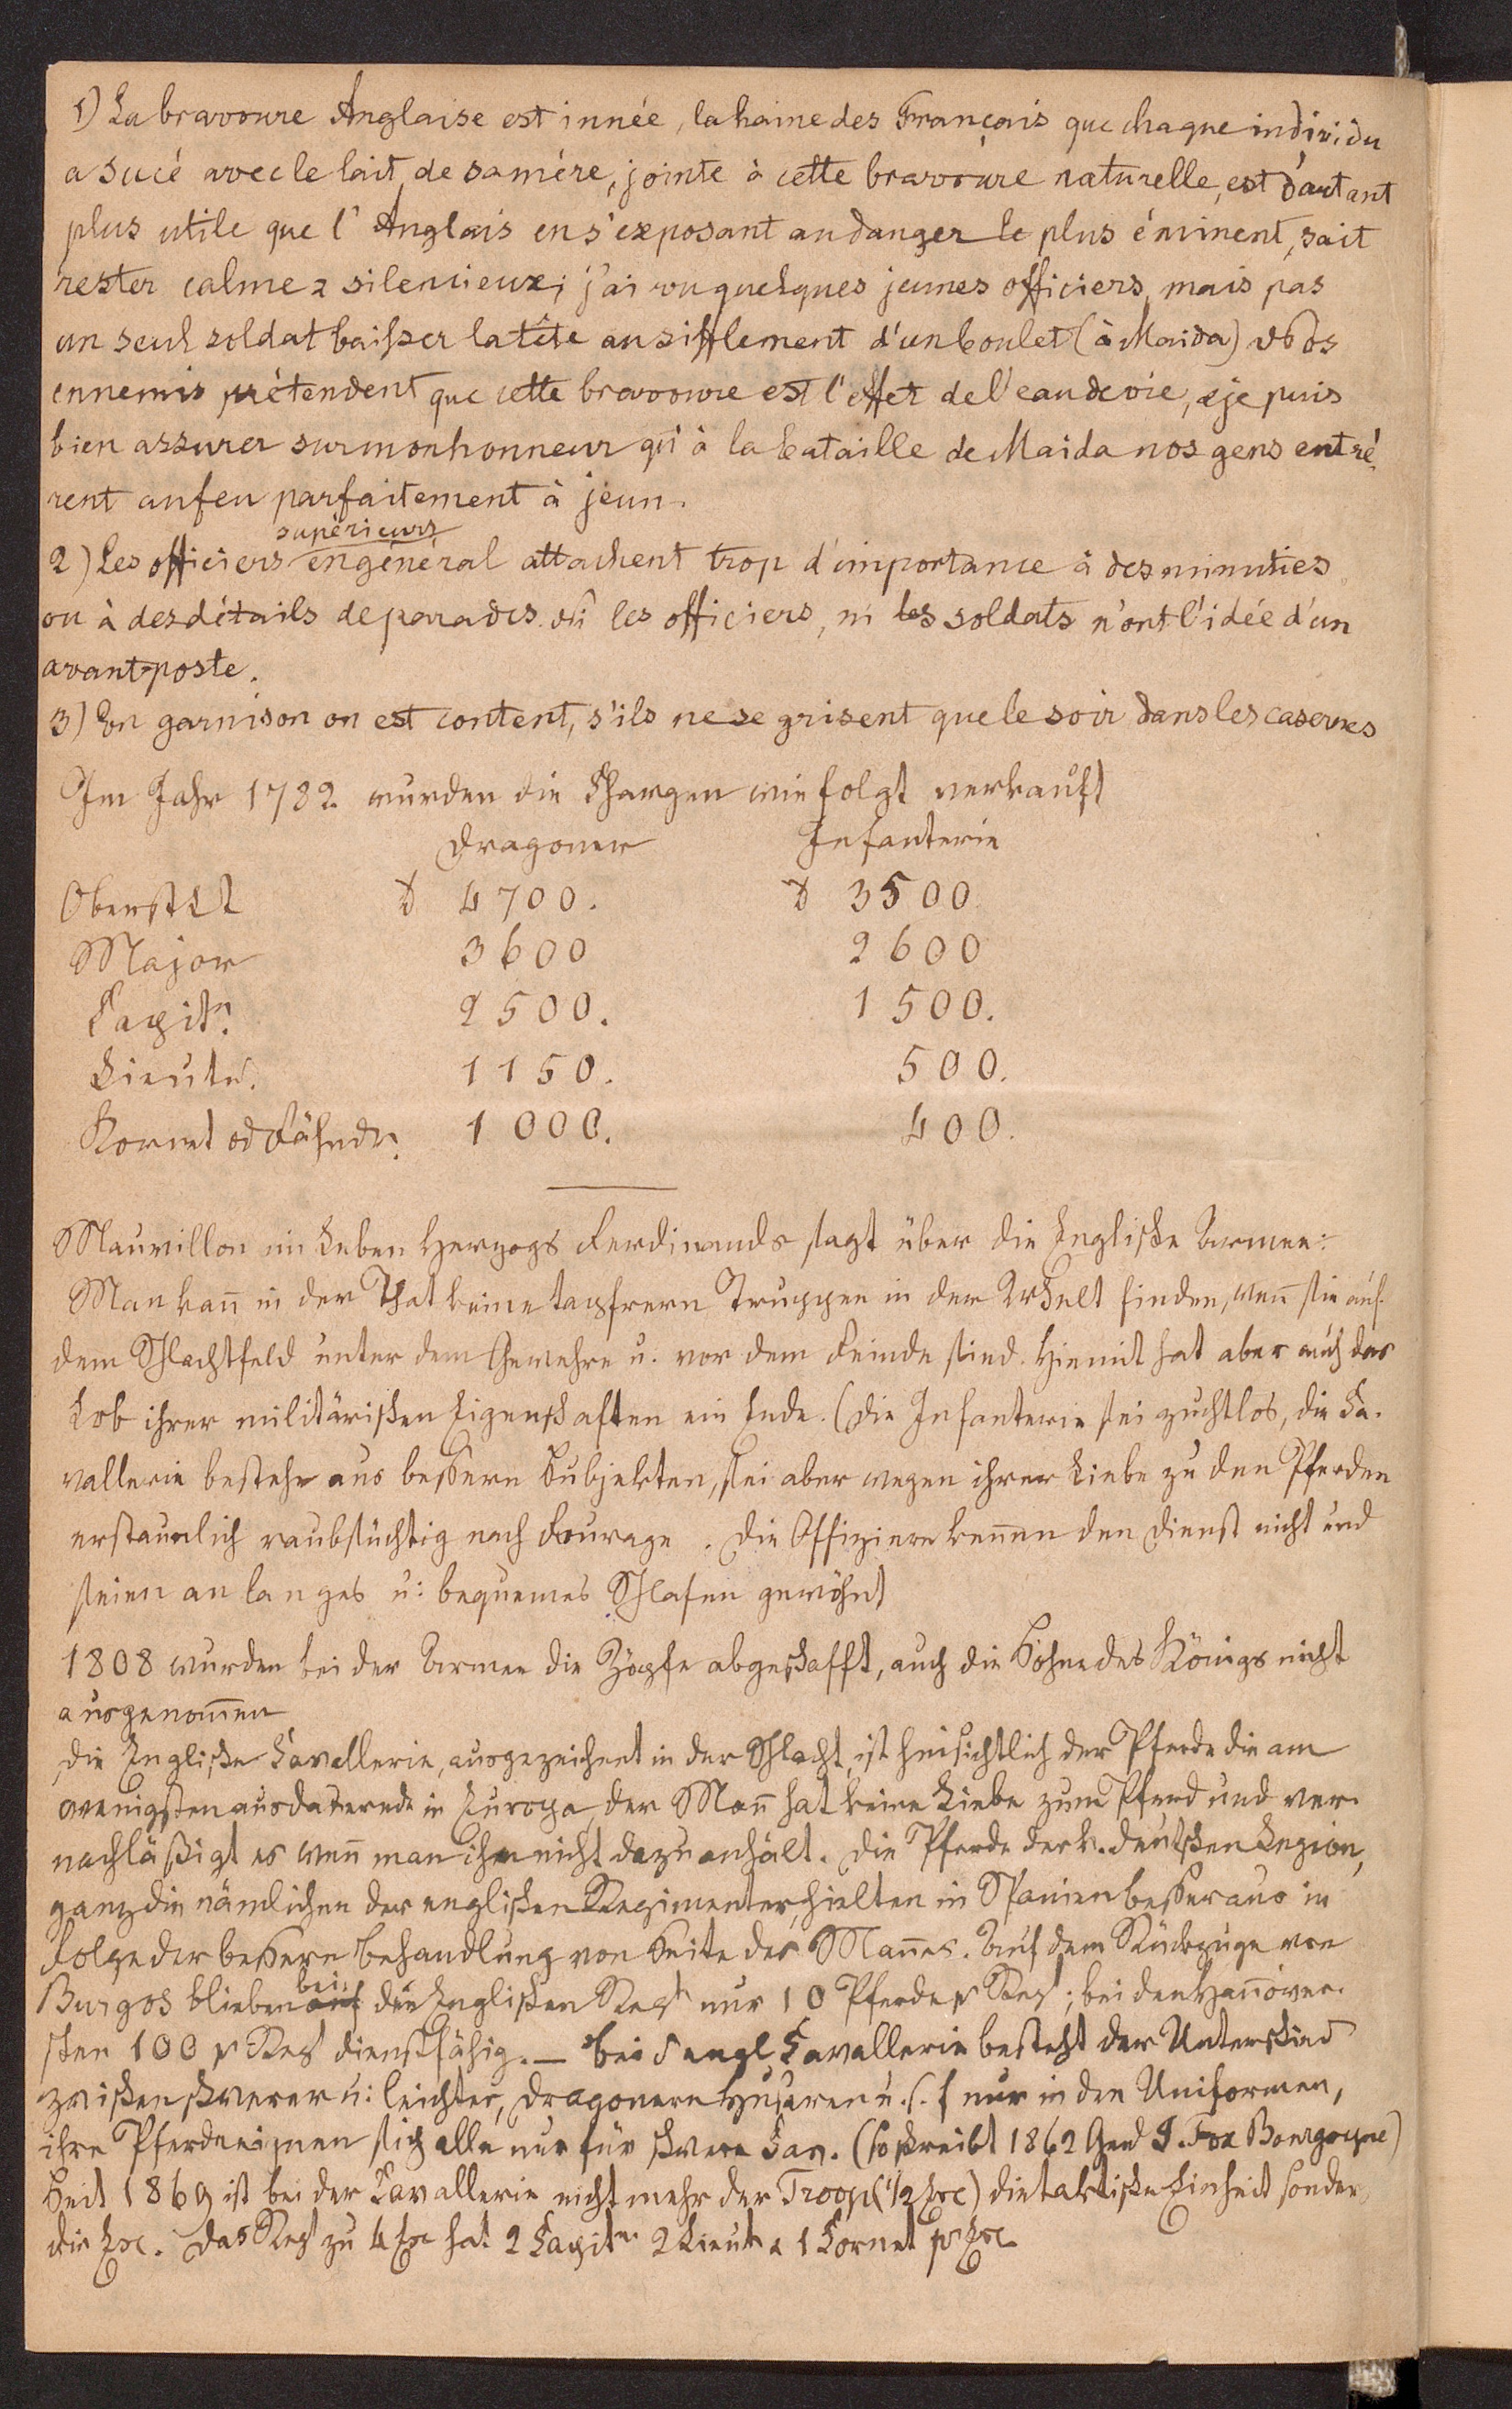 1) La bravoure Anglaise est innée, la haine des Français que chaque individu
a sucé avec le lait, de sa mére, jointe à cette bravoure naturelle, est d'autant
plus utile que l'Anglais en s'exposant au danger le plus éminent, sait
rester calme & silencieux; j'ai vu quelques jeunes officiers, mais pas
un seul soldat baisser la tête au sifflement d'un boulet (à Maida) Nos
ennemis prétendent que cette bravoure est l'effet de l'eau de vie, & je puis
bien assurer sur mon honneur qu'à la bataille de Maida nos gens entré
rent au feu parfaitement à jeun.
supérieurs
2) Les officiers en général attachent trop d'importance à des minuties
ou à des détails de parades. Ni les officiers, ni les soldats n'ont l'idée d'un
avant-poste.
3) En garnison on est content, s'ils ne se grisent que le soir dans les casernes
Im Jahr 1782. wurden die Chargen wie folgt verkauft
Dragoner Infanterie
Oberstlt 4700. 3500
Major 3600 2600
Capitn. 2500. 1500.
Lieutn. 1150. 500.
Kornet od Fähndr. 1000. 400.
Mauvillon im Leben Herzogs Ferdinands sagt über die Englische Armee:
Man kann in der That keine tapfrern Truppen in der Welt finden, wenn sie auf
dem Schlachtfeld unter dem Gewehre u. vor dem Feinde sind. Hiemit hat aber auch das
Lob ihrer militärischen Eigenschaften ein Ende. (Die Infanterie sei zuchtlos, die Ca-
vallerie bestehe aus bessern Subjekten, sei aber wegen ihrer Liebe zu den Pferden
erstaunlich raubsüchtig nach Fourage. Die Offiziere kennen den Dienst nicht und
seien an langes u: bequemes Schlafen gewöhnt
1808 wurden bei der Armee die Zöpfe abgeschafft, auch die Söhne des Königs nicht
ausgenommen
Die Englische Cavallerie, ausgezeichnet in der Schlacht, ist hinsichtlich der Pferde die am
wenigsten ausdauernde in Europa, der Mann hat keine Liebe zum Pferd und ver-
nachläßigt es wenn man ihn nicht dazu anhält. Die Pferde der k. deutschen Legion,
ganz die nämlichen der englischen Regimenter, hielten in Spanien besser aus in
Folge der bessern Behandlung von Seite des Mannes. Auf dem Rückzuge von
bei
Burgos blieben auf den Englischen Regt nur 10 Pferde pr Regt; bei den Hannöver-
schen 100 pr Regt dienstfähig. — Bei d engl Cavallerie besteht der Unterschied
zwischen schwerer u: leichter, Dragonern Husaren u. s. f nur in den Uniformen,
ihre Pferde eignen sich alle nur für schwere Cav. (So schreibt 1862 Genl J. Fox Bourgoyne)
Seit 1869 ist bei der Cavallerie nicht mehr der Troop (1/2 Esc) die taktische Einheit sondern
die Esc. Das Regt zu 4 Esc hat 2 Capitn 2 Lieut & 1 Cornet pr Esc